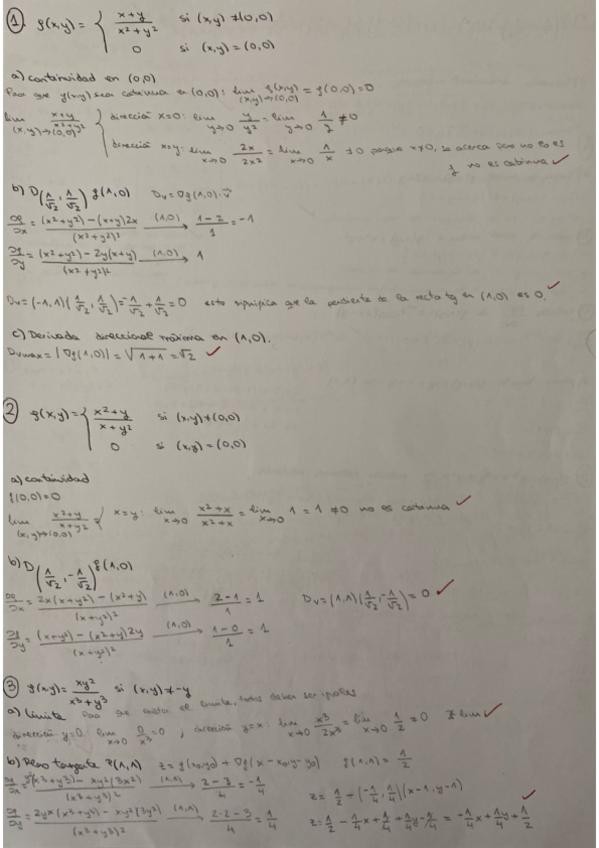 ① f(x,y) = { x+y / x²+y² si (x,y) ≠ (0,0)
0 si (x,y) = (0,0)
a) continuidad en (0,0)
Para que f(x,y) sea continua en (0,0): lim (x,y)→(0,0) f(x,y) = f(0,0) = 0
lim (x,y)→(0,0) x+y / x²+y² { dirección x=0: lim y→0 y/y² = lim y→0 1/y ≠ 0
dirección x=y: lim x→0 2x/2x² = lim x→0 1/x ≠ 0 porque x≠0, se acerca pero no lo es
f no es continua ✓
b) D(1/√2, 1/√2) f(1,0) Dv = ∇f(1,0)·v⃗
∂f/∂x = (x²+y²)-(x+y)2x / (x²+y²)² (1,0)→ 1-2/1 = -1
∂f/∂y = (x²+y²)-2y(x+y) / (x²+y²)² (1,0)→ 1
Dv = (-1,1)(1/√2, 1/√2) = -1/√2 + 1/√2 = 0 esto significa que la pendiente de la recta tg en (1,0) es 0. ✓
c) Derivada direccional máxima en (1,0).
Dvmax = |∇f(1,0)| = √1+1 = √2 ✓
② f(x,y) = { x²+y / x+y² si (x,y) ≠ (0,0)
0 si (x,y) = (0,0)
a) continuidad
f(0,0)=0
lim (x,y)→(0,0) x²+y / x+y² { x=y: lim x→0 x²+x / x²+x = lim x→0 1 = 1 ≠ 0 no es continua ✓
b) D(1/√2, -1/√2) f(1,0)
∂f/∂x = 2x(x+y²)-(x²+y) / (x+y²)² (1,0)→ 2-1/1 = 1 Dv = (1,1)(1/√2, -1/√2) = 0 ✓
∂f/∂y = (x+y²)-(x²+y)2y / (x+y²)² (1,0)→ 1-0/1 = 1
③ f(x,y) = xy² / x³+y³ si (x,y) ≠ -y
a) Límite Para que exista el límite, todos deben ser iguales
dirección y=0: lim x→0 0/x³ = 0 , dirección y=x: lim x→0 x³/2x³ = lim x→0 1/2 ≠ 0 ∄ lim ✓
b) Plano tangente P(1,1) z = f(x0,y0) + ∇f(x-x0, y-y0) f(1,1) = 1/2
∂f/∂x = y²(x³+y³) - xy²(3x²) / (x³+y³)² (1,1)→ 2-3/4 = -1/4 z = 1/2 + (-1/4, 1/4)(x-1, y-1)
∂f/∂y = 2yx(x³+y³) - xy²(3y²) / (x³+y³)² (1,1)→ 2·2-3/4 = 1/4 z = 1/2 - 1/4x + 1/4 + 1/4y - 1/4 = -1/4x + 1/4y + 1/2 ✓